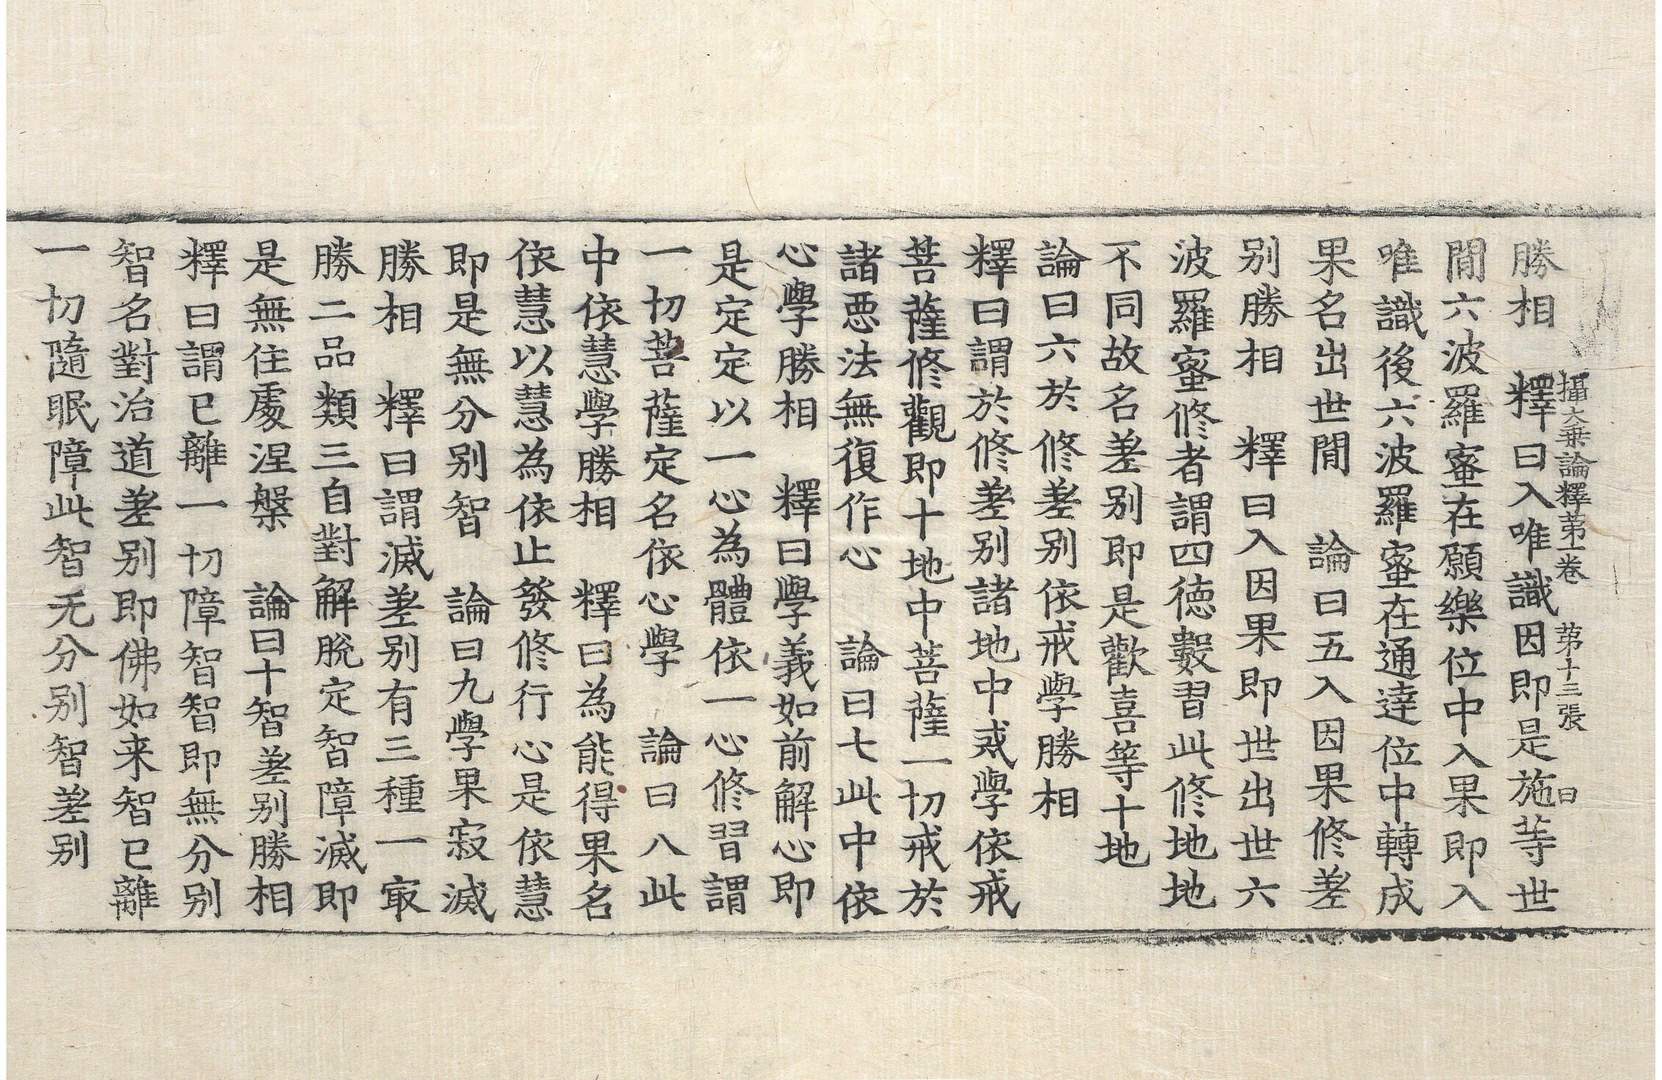 攝大乗論釋苐一卷　苐十三張　曰
勝相　釋曰入唯識因即是施等世
閒六波羅蜜在願樂位中入果即入
唯識後六波羅蜜在通達位中轉成
果名出世閒　論曰五入因果修差
别勝相　釋曰入因果即世出世六
波羅蜜修者謂四徳數習此修地地
不同故名差别即是歡喜等十地
論曰六於修差别依戒學勝相
釋曰謂於修差别諸地中戒學依戒
菩薩修觀即十地中菩薩一切戒於
諸悪法無復作心　論曰七此中依
心學勝相　釋曰學義如前解心即
是定定以一心為體依一心修習謂
一切菩薩定名依心學　論曰八此
中依慧學勝相　釋曰為能得果名
依慧以慧為依止發修行心是依慧
即是無分别智　論曰九學果寂滅
勝相　釋曰謂滅差别有三種一㝡
勝二品類三自對解脫定智障滅即
是無住處涅槃　論曰十智差别勝相
釋曰謂已離一切障智智即無分别
智名對治道差别即佛如来智已離
一切隨眠障此智无分别智差别